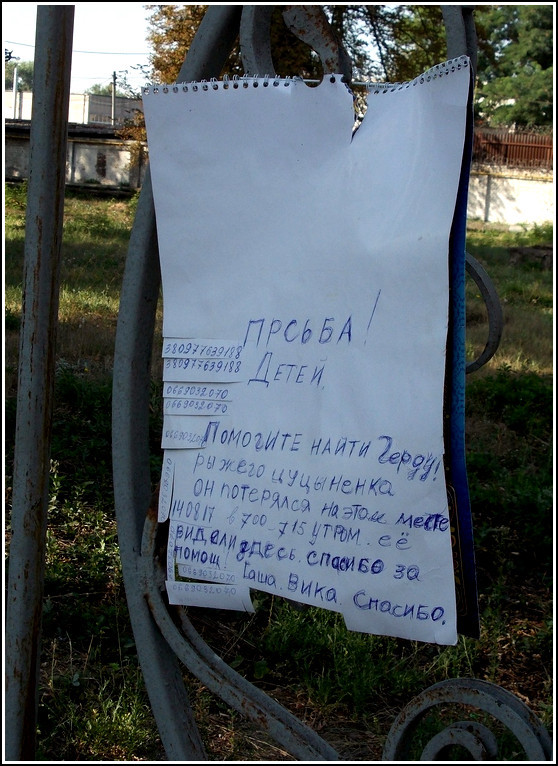 ПРСЬБА!
ДЕТЕЙ.
380977639188
380977639188
0669032070
0669032070
ПОМОГИТЕ НАЙТИ Герду!
рыжего цуцыненка
он потерялся на этом месте
140817 в 700-715 УТРОМ. её
видели здесь. спасибо за
помощ! Саша. Вика. Спасибо.
0669032070
0669032070